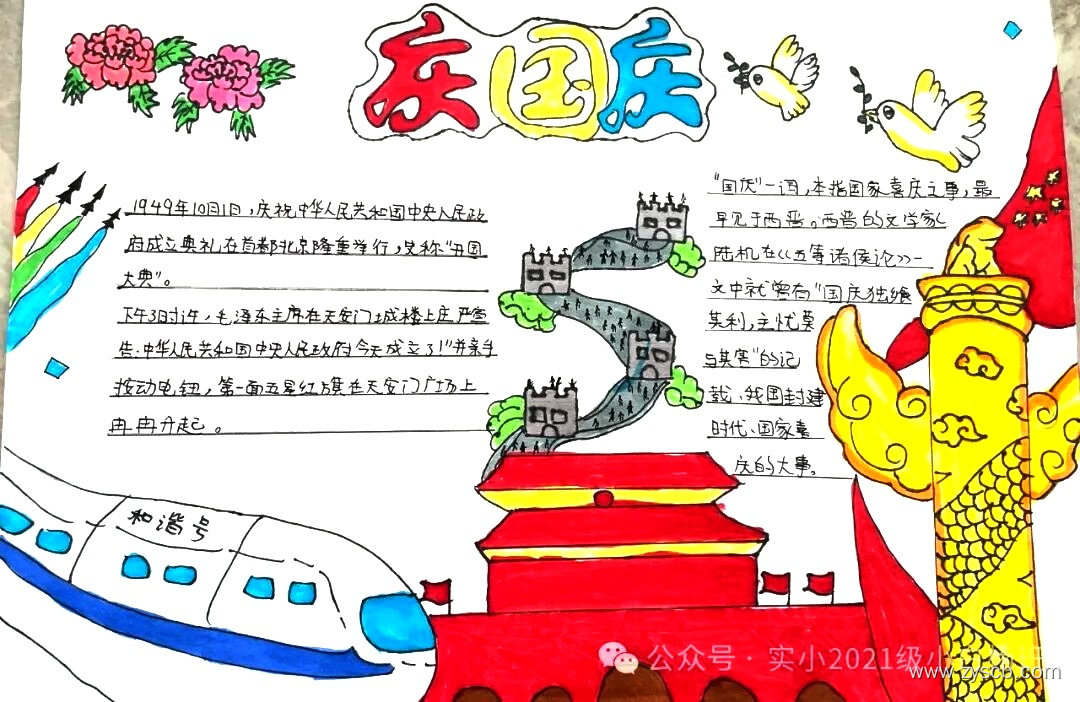 庆国庆
1949年10月1日，庆祝中华人民共和国中央人民政
府成立典礼在首都北京隆重举行，史称"开国
大典"。
下午3时许，毛泽东主席在天安门城楼上庄严宣
告:中华人民共和国中央人民政府今天成立了!"并亲手
按动电钮，第一面五星红旗在天安门广场上
冉冉升起。
"国庆"一词，本指国家喜庆之事，最
早见于西晋。西晋的文学家
陆机在《五等诸侯论》一
文中就曾有"国庆独飨
其利，主忧莫
与其害"的记
载、我国封建
时代、国家喜
庆的大事。
和谐号
公众号·实小2021级小
www.zyscb.com